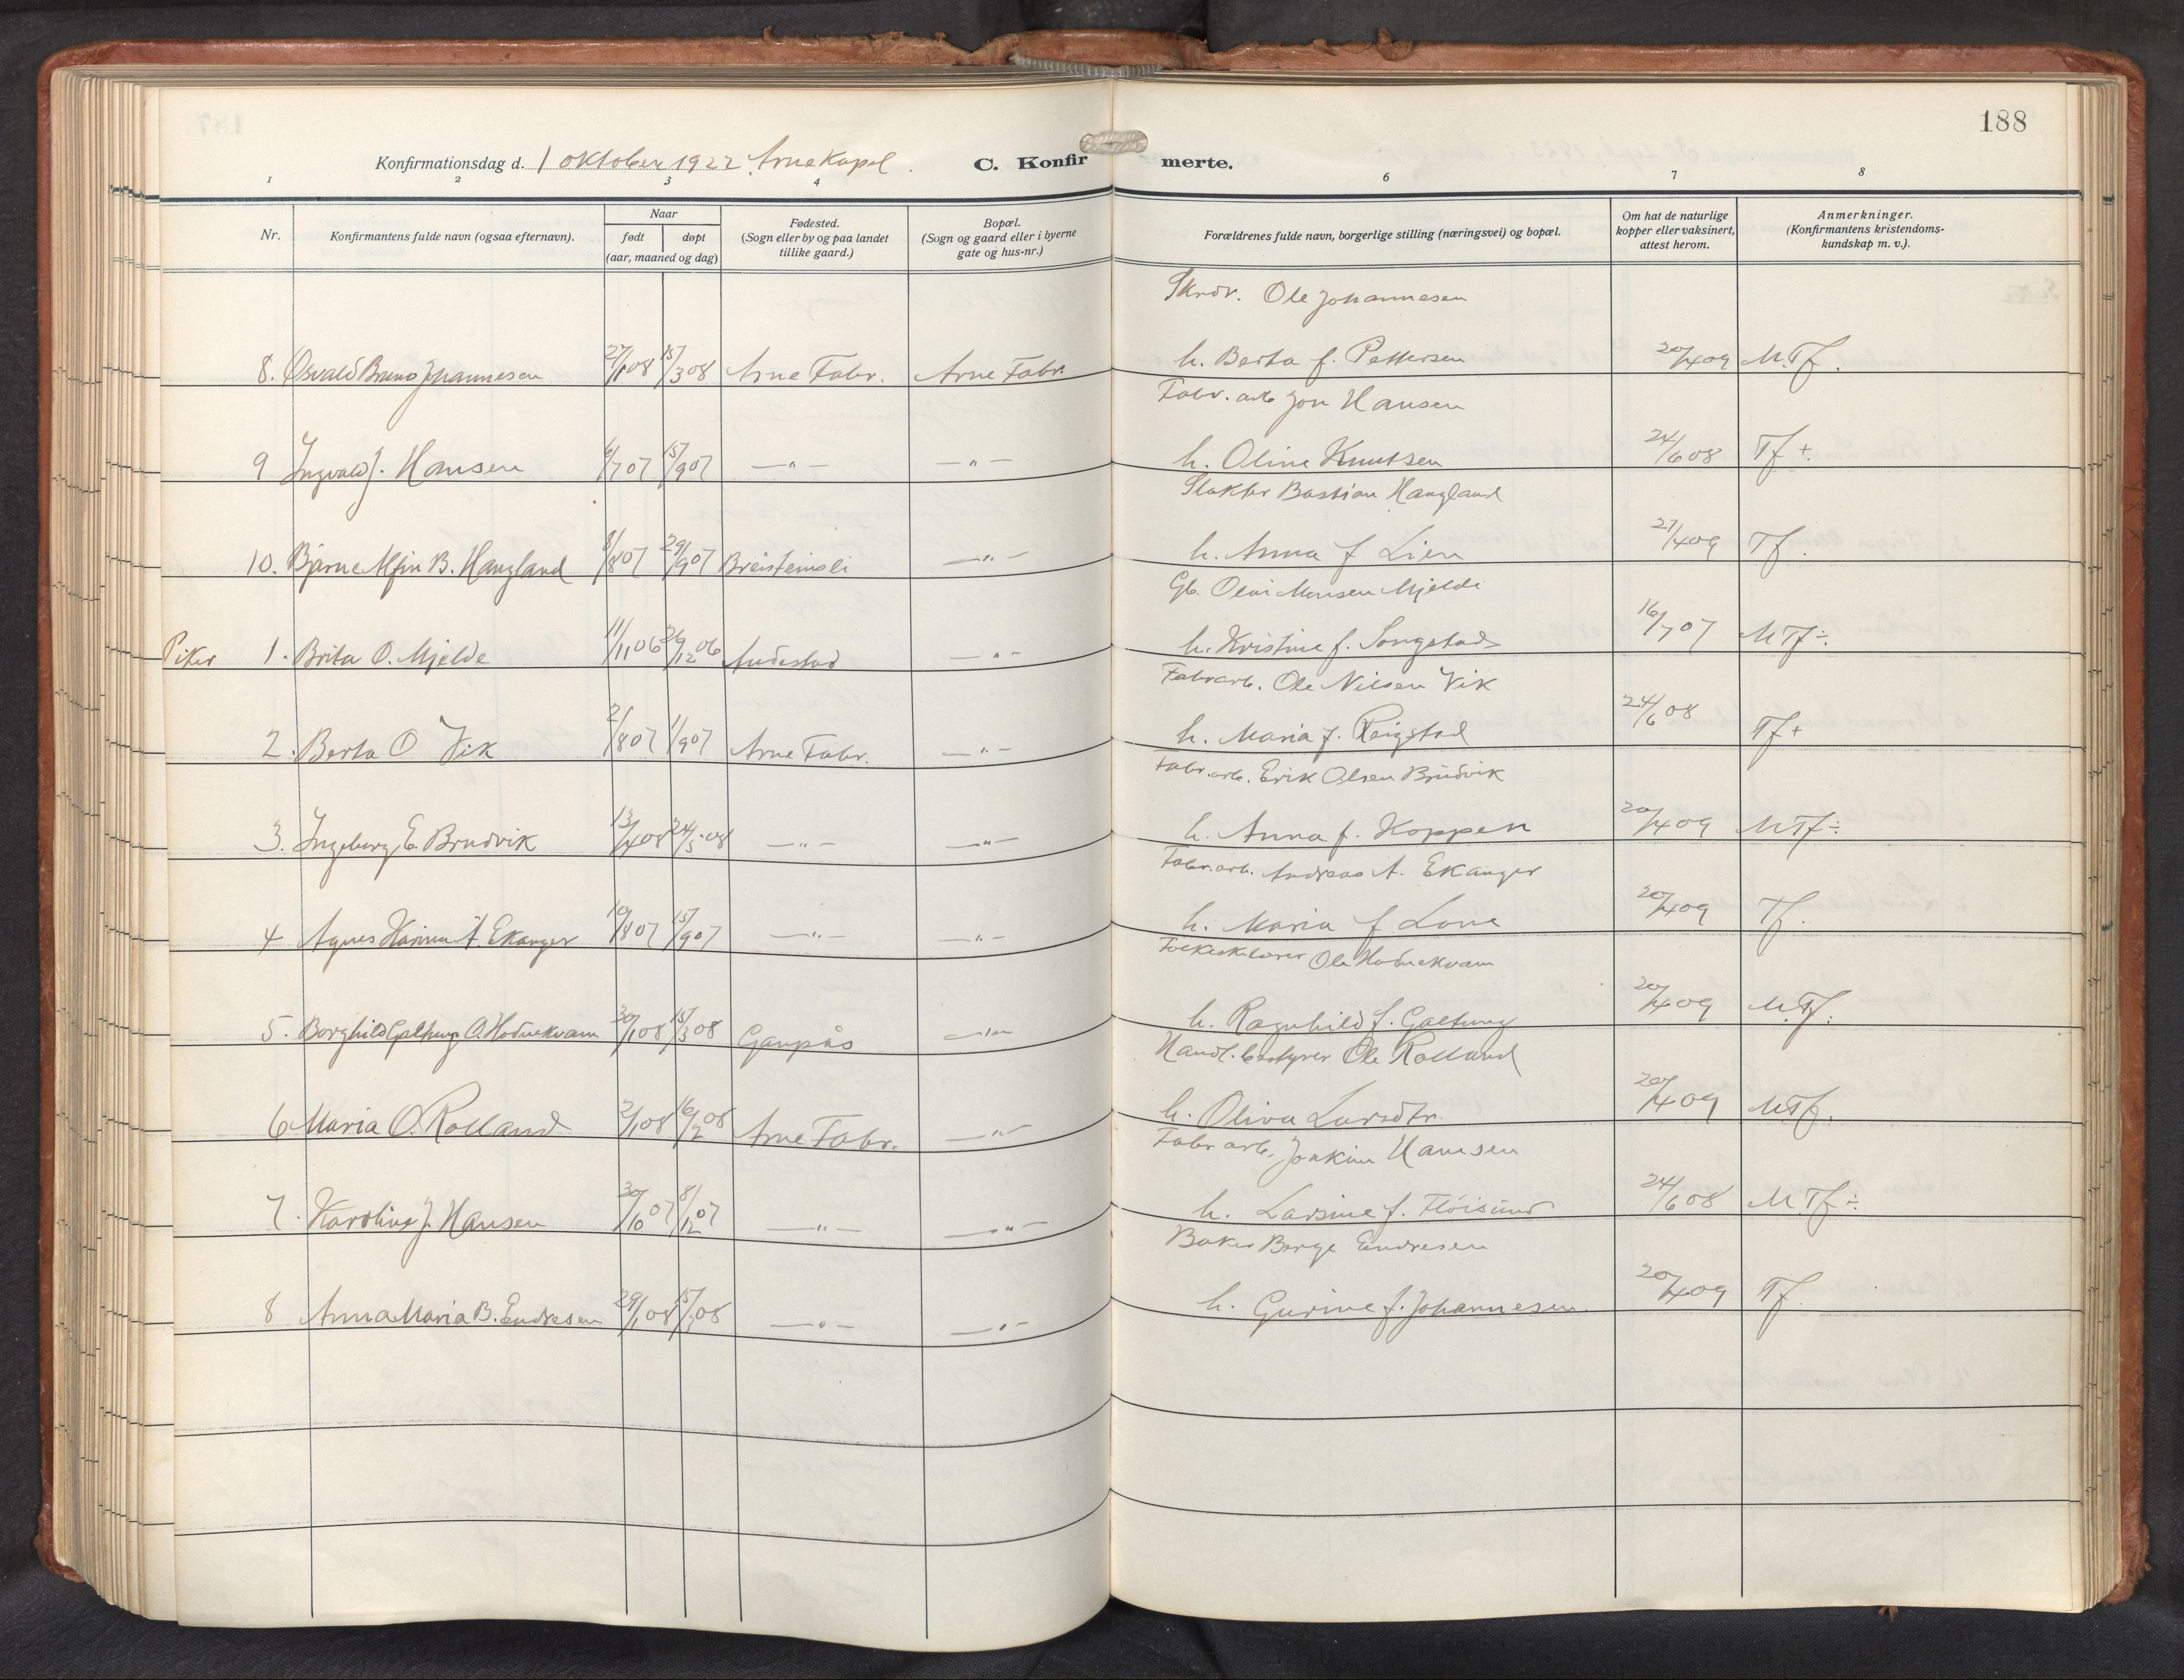 188
Konfirmationsdag d. 1 oktober 1922 Arne Kapel.
C. Konfirmerte.
1 2 3 4 6 7 8
Nr.
Konfirmantens fulde navn (ogsaa efternavn).
Naar
født døpt
(aar, maaned og dag)
Fødested.
(Sogn eller by og paa landet
tillike gaard.)
Bopæl.
(Sogn og gaard eller i byerne
gate og hus-nr.)
Forældrenes fulde navn, borgerlige stilling (næringsvei) og bopæl.
Om hat de naturlige
kopper eller vaksinert,
attest herom.
Anmerkninger.
(Konfirmantens kristendoms-
kundskap m. v.).
Skrdr. Ole Johannesen
8. Osvald Bruno Johannesen 27/1 08 15/3 08 Arne Fabr. Arne Fabr. h. Berta f. Pettersen 20/4 09 M.Tf.
Fabr. arb Jon Hansen
9 Ingvald J. Hansen 6/7 07 15/9 07 —"— —"— h. Oline Knutsen 24/6 08 Tf +.
Slakter Bastian Haugland
10. Bjarne Alfin B. Haugland 8/8 07 29/9 07 Breisteinsli —"— h. Anna f Lien 27/4 09 Tf.
Gb. Olai Monsen Mjelde
Piker 1. Brita O. Mjelde 11/11 06 26/12 06 Indestad —"— h. Kristine f. Songstad 16/7 07 MTf ÷.
Fabrarb. Ole Nilsen Vik
2. Berta O Vik 2/8 07 1/9 07 Arne Fabr. —"— h. Maria f. Reigstad 24/6 08 Tf +
Fabr.arb. Erik Olsen Brudvik
3. Ingeborg E. Brudvik 13/4 08 24/5 08 —"— —"— h. Anna f. Koppen 20/4 09 MTf ÷
Fabr.arb. Andreas A. Ekanger
4 Agnes Karina A. Ekanger 10/8 07 15/9 07 —"— —"— h. Maria f Lone 20/4 09 Tf.
Folkeskolærer Ole Hodnekvam
5. Borghild Galtung O. Hodnekvam 30/1 08 15/3 08 Garpås —"— h. Ragnhild f. Galtung 20/4 09 M.Tf.
Handl. bestyrer Ole Rolland
6 Maria O. Rolland 2/1 08 16/2 08 Arne Fabr. —"— h. Oliva Larsdtr. 20/4 09 MTf.
Fabr arb. Joakim Hansen
7. Karoline J. Hansen 30/10 07 8/12 07 —"— —"— h. Larsine f. Fløisund 24/6 08 M Tf ÷
Baker Berge Endresen
8 Anna Maria B. Endresen 29/1 08 15/3 08 —"— —"— h. Gurine f. Johannesen. 20/4 09 Tf